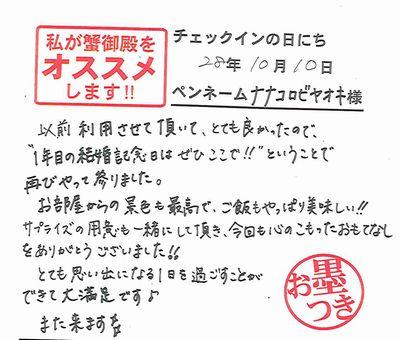 私が蟹御殿を
オススメ
します!!
チェックインの日にち
28年10月10日
ペンネームナナコロビヤオキ様
以前利用させて頂いて、とても良かったので、
"1年目の結婚記念日はぜひここで!!"ということで
再びやって参りました。
お部屋からの景色も最高で、ご飯もやっぱり美味しい!!
サプライズの用意も一緒にして頂き、今回も心のこもったおもてなし
をありがとうございました!!
とても思い出になる1日を過ごすことが
できて大満足です♪
また来ます
お墨つき